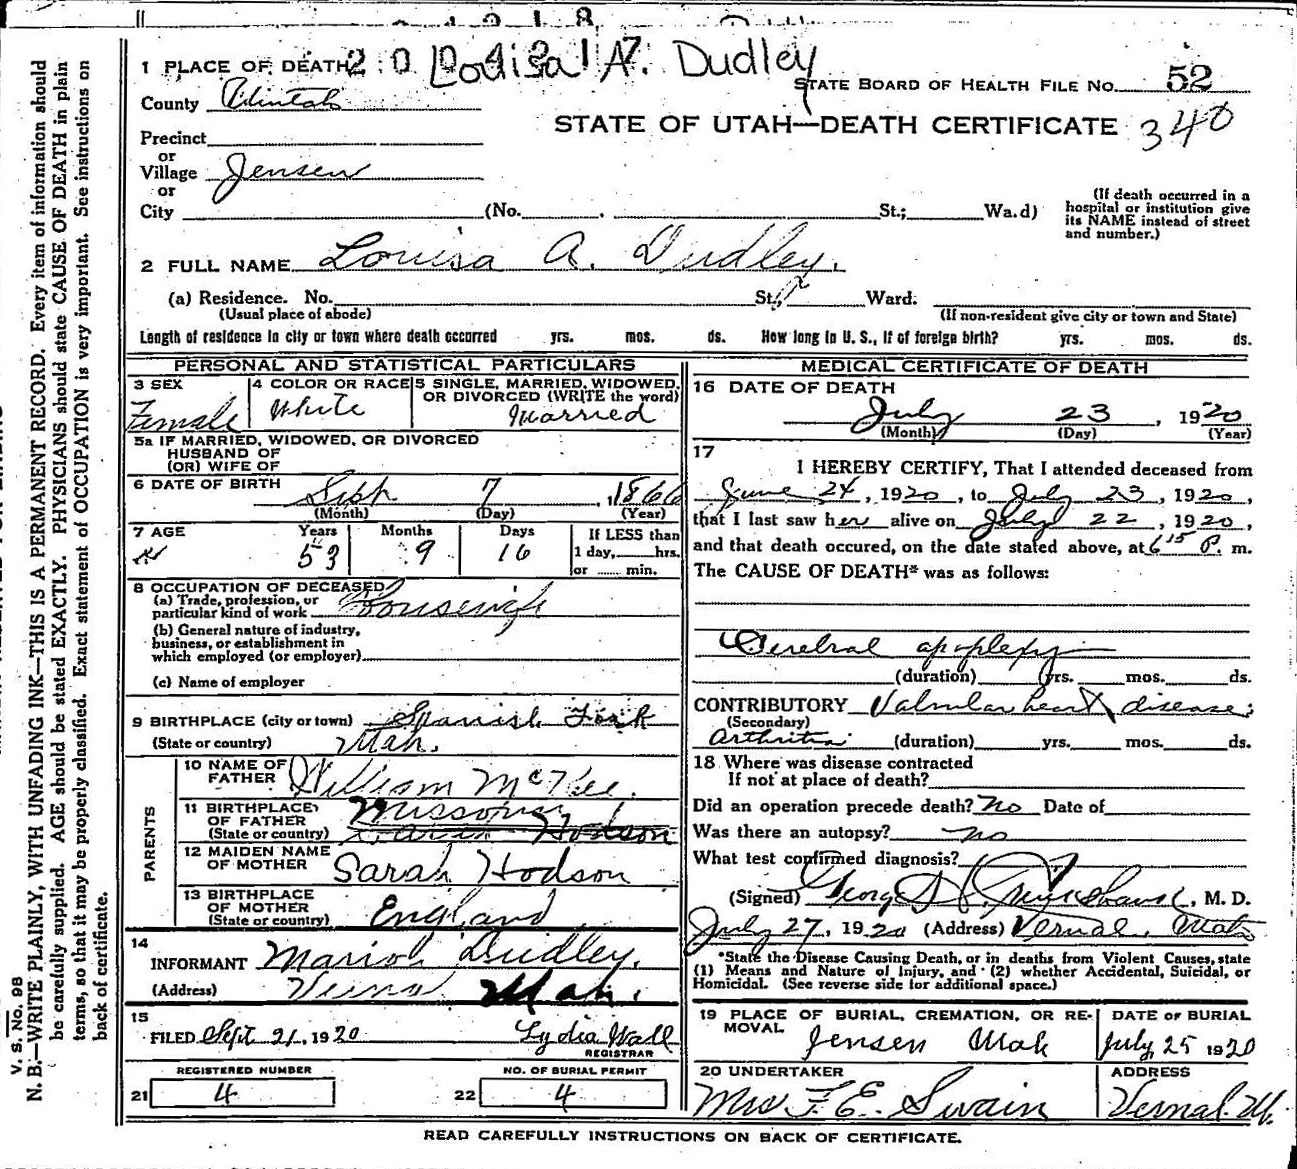 Louisa A. Dudley
1 PLACE OF DEATH
STATE BOARD OF HEALTH FILE No. 52
County Uintah
STATE OF UTAH—DEATH CERTIFICATE 340
Precinct
or
Village Jensen
or
City (No. . St.; Wa.d)
(If death occurred in a hospital or institution give its NAME instead of street and number.)
2 FULL NAME Louisa A. Dudley.
(a) Residence. No. St., Ward.
(Usual place of abode) (If non-resident give city or town and State)
Length of residence in city or town where death occurred yrs. mos. ds. How long in U. S., if of foreign birth? yrs. mos. ds.
PERSONAL AND STATISTICAL PARTICULARS
3 SEX 4 COLOR OR RACE 5 SINGLE, MARRIED, WIDOWED,
OR DIVORCED (WRITE the word)
Female White Married
5a IF MARRIED, WIDOWED, OR DIVORCED
HUSBAND OF
(OR) WIFE OF
6 DATE OF BIRTH Sept 7, 1866
(Month) (Day) (Year)
7 AGE Years Months Days If LESS than
53 9 16 1 day, hrs.
or min.
8 OCCUPATION OF DECEASED
(a) Trade, profession, or
particular kind of work Housewife
(b) General nature of industry,
business, or establishment in
which employed (or employer)
(c) Name of employer
9 BIRTHPLACE (city or town) Spanish Fork
(State or country) Utah.
PARENTS
10 NAME OF
FATHER William McKee.
11 BIRTHPLACE
OF FATHER Missouri
(State or country) Hodson
12 MAIDEN NAME
OF MOTHER Sarah Hodson
13 BIRTHPLACE
OF MOTHER England
(State or country)
14
INFORMANT Marion Dudley.
(Address) Vernal Utah.
15
FILED Sept 21, 1920 Lydia Wall
REGISTRAR
REGISTERED NUMBER NO. OF BURIAL PERMIT
21 4 22 4
MEDICAL CERTIFICATE OF DEATH
16 DATE OF DEATH
July 23, 1920
(Month) (Day) (Year)
17
I HEREBY CERTIFY, That I attended deceased from
June 24, 1920, to July 23, 1920,
that I last saw her alive on July 22, 1920,
and that death occured, on the date stated above, at 6 15 P. m.
The CAUSE OF DEATH* was as follows:
Cerebral apoplexy
(duration) yrs. mos. ds.
CONTRIBUTORY Valvular heart disease;
(Secondary)
Arthritis (duration) yrs. mos. ds.
18 Where was disease contracted
If not at place of death?
Did an operation precede death? No Date of
Was there an autopsy? no
What test confirmed diagnosis?
(Signed) George, M. D.
July 27, 1920 (Address) Vernal, Utah
*State the Disease Causing Death, or in deaths from Violent Causes, state
(1) Means and Nature of Injury, and (2) whether Accidental, Suicidal, or
Homicidal. (See reverse side for additional space.)
19 PLACE OF BURIAL, CREMATION, OR RE-
MOVAL
Jensen Utah
DATE OF BURIAL
July, 25 1920
20 UNDERTAKER ADDRESS
Mrs F. E. Swain Vernal. Ut.
READ CAREFULLY INSTRUCTIONS ON BACK OF CERTIFICATE.
V. S. No. 98
N. B.—WRITE PLAINLY, WITH UNFADING INK—THIS IS A PERMANENT RECORD. Every item of information should
be carefully supplied. AGE should be stated EXACTLY. PHYSICIANS should state CAUSE OF DEATH in plain
terms, so that it may be properly classified. Exact statement of OCCUPATION is very important. See instructions on
back of certificate.